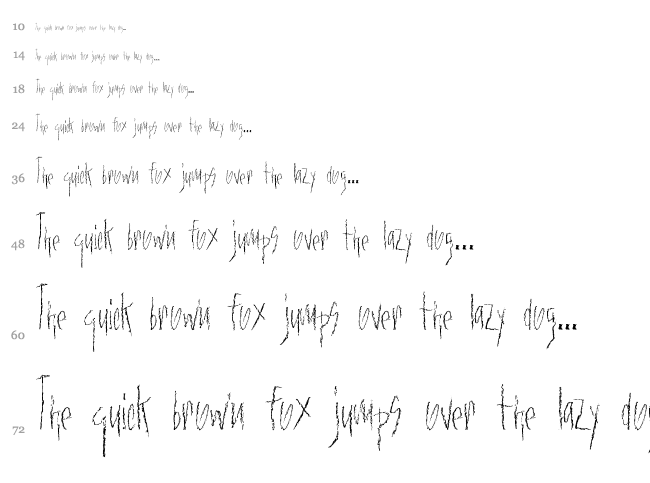 10 The quick brown fox jumps over the lazy dog...
14 The quick brown fox jumps over the lazy dog...
18 The quick brown fox jumps over the lazy dog...
24 The quick brown fox jumps over the lazy dog...
36 The quick brown fox jumps over the lazy dog...
48 The quick brown fox jumps over the lazy dog...
60 The quick brown fox jumps over the lazy dog...
72 The quick brown fox jumps over the lazy dog